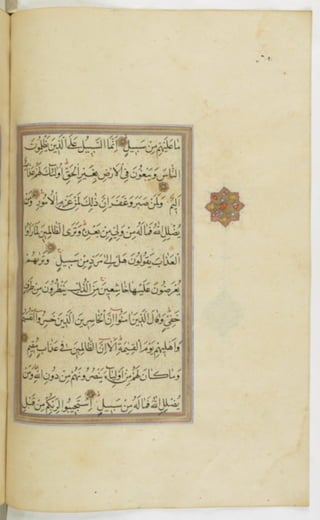 ما عليهم من سبيل انما السبيل على الذين يظلمون
الناس ويبغون في الارض بغير الحق اولئك لهم عذاب
اليم ولمن صبر وغفر ان ذلك لمن عزم الامور ومن
يضلل الله فما له من ولي من بعده وترى الظالمين لما راوا
العذاب يقولون هل الى مرد من سبيل وتريهم
يعرضون عليها خاشعين من الذل ينظرون من طرف
خفي وقال الذين امنوا ان الخاسرين الذين خسروا انفسهم
واهليهم يوم القيمة الا ان الظالمين في عذاب مقيم
وما كان لهم من اولياء ينصرونهم من دون الله ومن
يضلل الله فما له من سبيل استجيبوا لربكم من قبل